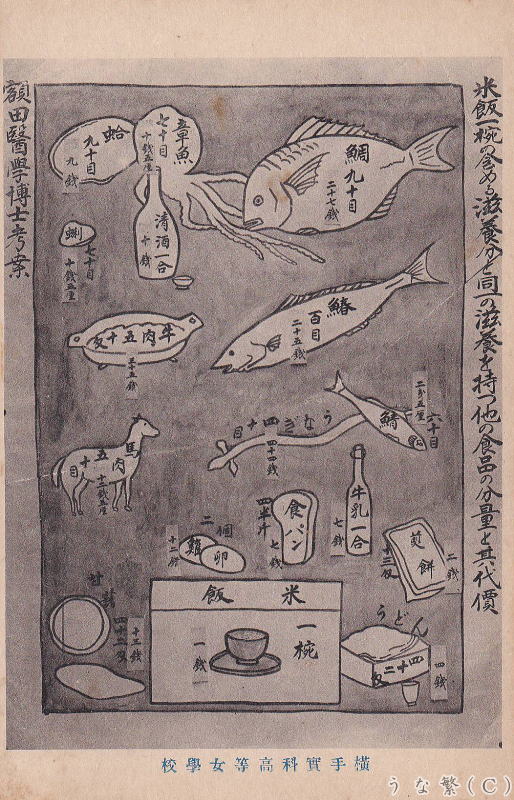 米飯一椀の含める滋養分と同一の滋養を持つ他の食品の分量と其代價
鯛九十目
二十七銭
章魚
七十目
十銭五厘
蛤
九十目
九銭
清酒一合
十銭
蜊
七十目
十銭五厘
鰆
百目
二十五銭
牛肉五十匁
三十五銭
六十目
二銭五厘
うなぎ四十目
四十四銭
馬肉五十目
牛乳一合
七銭
食パン
四半斤
七銭
二個
雞卵
十二銭
煎餅
十三匁
二銭
甘藷
四十二匁
十三銭
うどん
四十二匁
四銭
米飯
一椀
一銭
額田醫學博士考案
橫手實科高等女學校
うな繁(C)